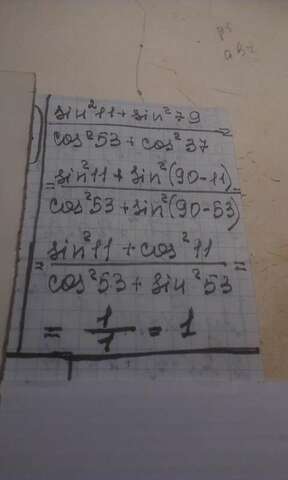 ps
abc
sin²11 + sin²79
cos²53 + cos²37 =
= sin²11 + sin²(90-11) =
cos²53 + sin²(90-53)
= sin²11 + cos²11 =
cos²53 + sin²53
= 1/1 = 1